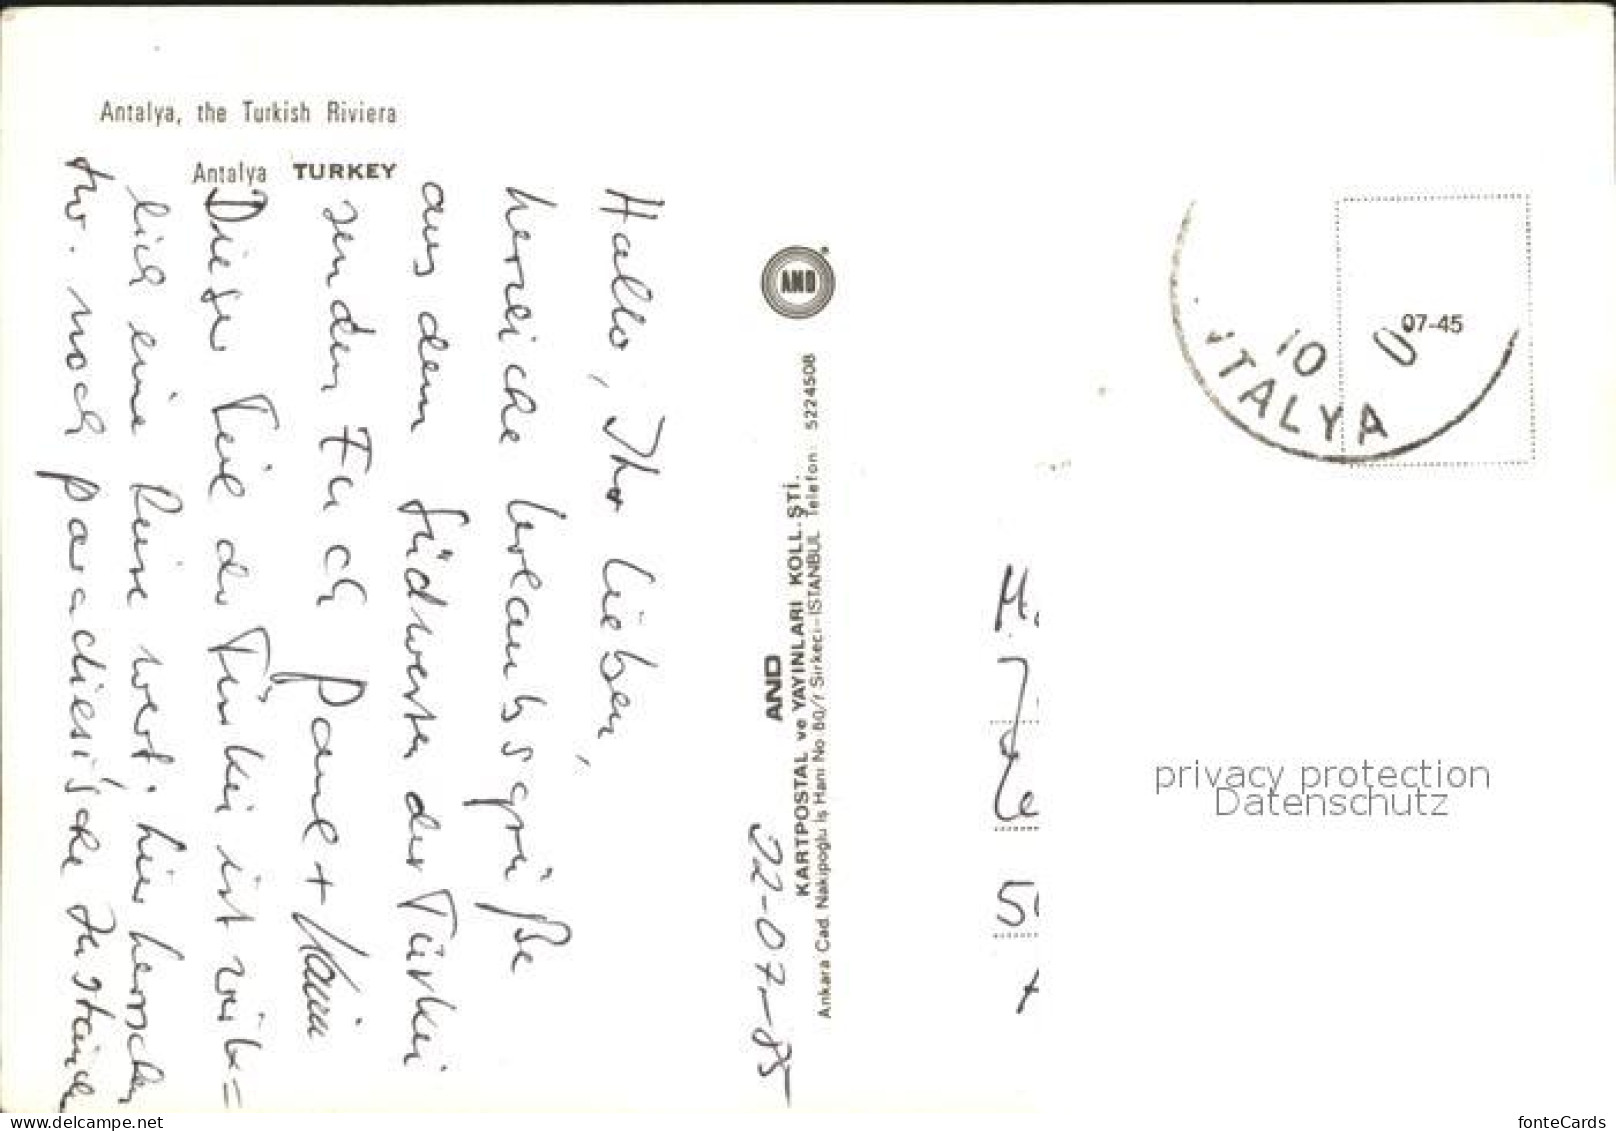 Antalya, the Turkish Riviera
Antalya TURKEY
Hallo, Ihr Lieben,
herzliche Urlaubsgrüße
aus dem Südwesten der Türkei
senden Euch Paul + Karin
Dieser Teil der Türkei ist wirk=
lich eine Reise wert; hier herrschen
zw. noch paradiesische Zustände
22-07-85
AND
AND
KARTPOSTAL ve YAYINLARI KOLL. ŞTİ.
Ankara Cad. Nakipoğlu İş Hanı No: 80/1 Sirkeci-İSTANBUL Telefon: 5224508
07-45
10
TALYA
H.
50
privacy protection
Datenschutz
delcampe.net
fonteCards